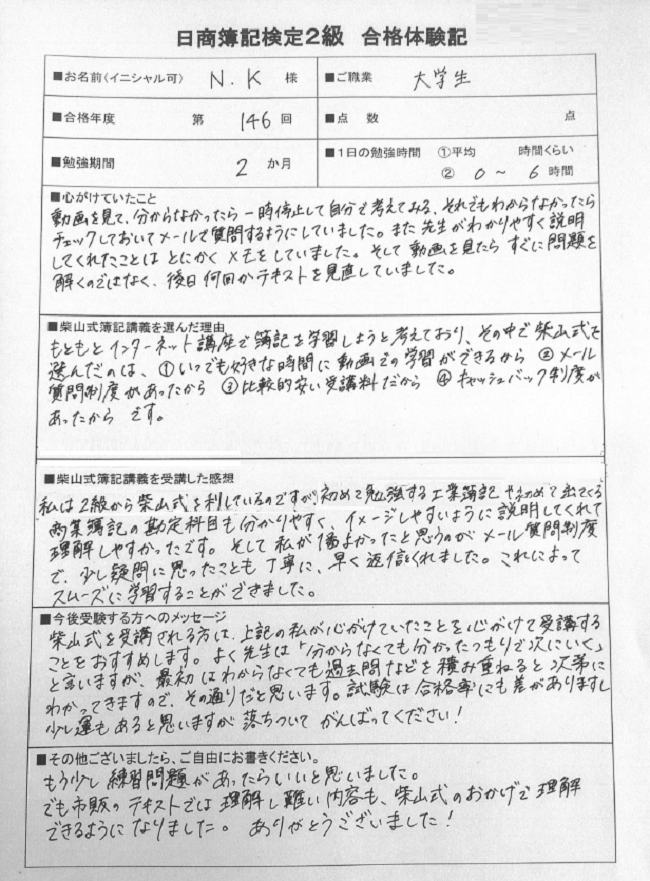 日商簿記検定2級 合格体験記
■お名前(イニシャル可) N.K 様 ■ご職業 大学生
■合格年度 第 146 回 ■点 数 点
■勉強期間 2 か月 ■1日の勉強時間 ①平均 時間くらい
② 0 ~ 6 時間
■心がけていたこと
動画を見て、分からなかったら一時停止して自分で考えてみる、それでもわからなかったら
チェックしておいてメールで質問するようにしていました。また先生がわかりやすく説明
してくれたことはとにかくメモをしていました。そして動画を見たらすぐに問題を
解くのではなく、後日何回かテキストを見直していました。
■柴山式簿記講義を選んだ理由
もともとインターネット講座で簿記を学習しようと考えており、その中で柴山式を
選んだのは、①いつでも好きな時間に動画での学習ができるから ②メール
質問制度があったから ③比較的安い受講料だから ④キャッシュバック制度が
あったから です。
■柴山式簿記講義を受講した感想
私は2級から柴山式を利しているのですが初めて勉強する工業簿記や初めて出てくる
商業簿記の勘定科目も分かりやすく、イメージしやすいように説明してくれて
理解しやすかったです。そして私が1番よかったと思うのがメール質問制度
で、少し疑問に思ったことも丁寧に、早く返信くれました。これによって
スムーズに学習することができました。
■今後受験する方へのメッセージ
柴山式を受講される方は、上記の私が心がけていたことを心がけて受講する
ことをおすすめします。よく先生は「分からなくても分かったつもりで次にいく」
と言いますが、最初はわからなくても過去問などを積み重ねると次第に
わかってきますので、その通りだと思います。試験は合格率にも差がありますし
少し運もあると思いますが落ちついてがんばってください!
■その他ございましたら、ご自由にお書きください。
もう少し練習問題があったらいいと思いました。
でも市販のテキストでは理解し難い内容も、柴山式のおかげで理解
できるようになりました。ありがとうございました!